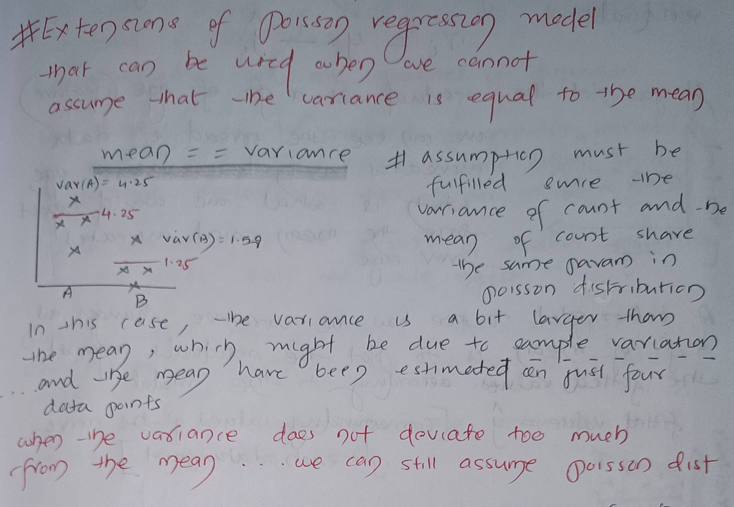 #Extensions of Poisson regression model
that can be used when we cannot
assume that the variance is equal to the mean
mean == variance
# assumption must be
fulfilled since the
variance of count and the
mean of count share
the same param in
poisson distribution
var(A) = 4.25
4.25
var(B) = 1.59
1.25
A
B
In this case, the variance is a bit larger than
the mean, which might be due to sample variation
... and the mean have been estimated on just four
data points
when the variance does not deviate too much
from the mean ... we can still assume poisson dist